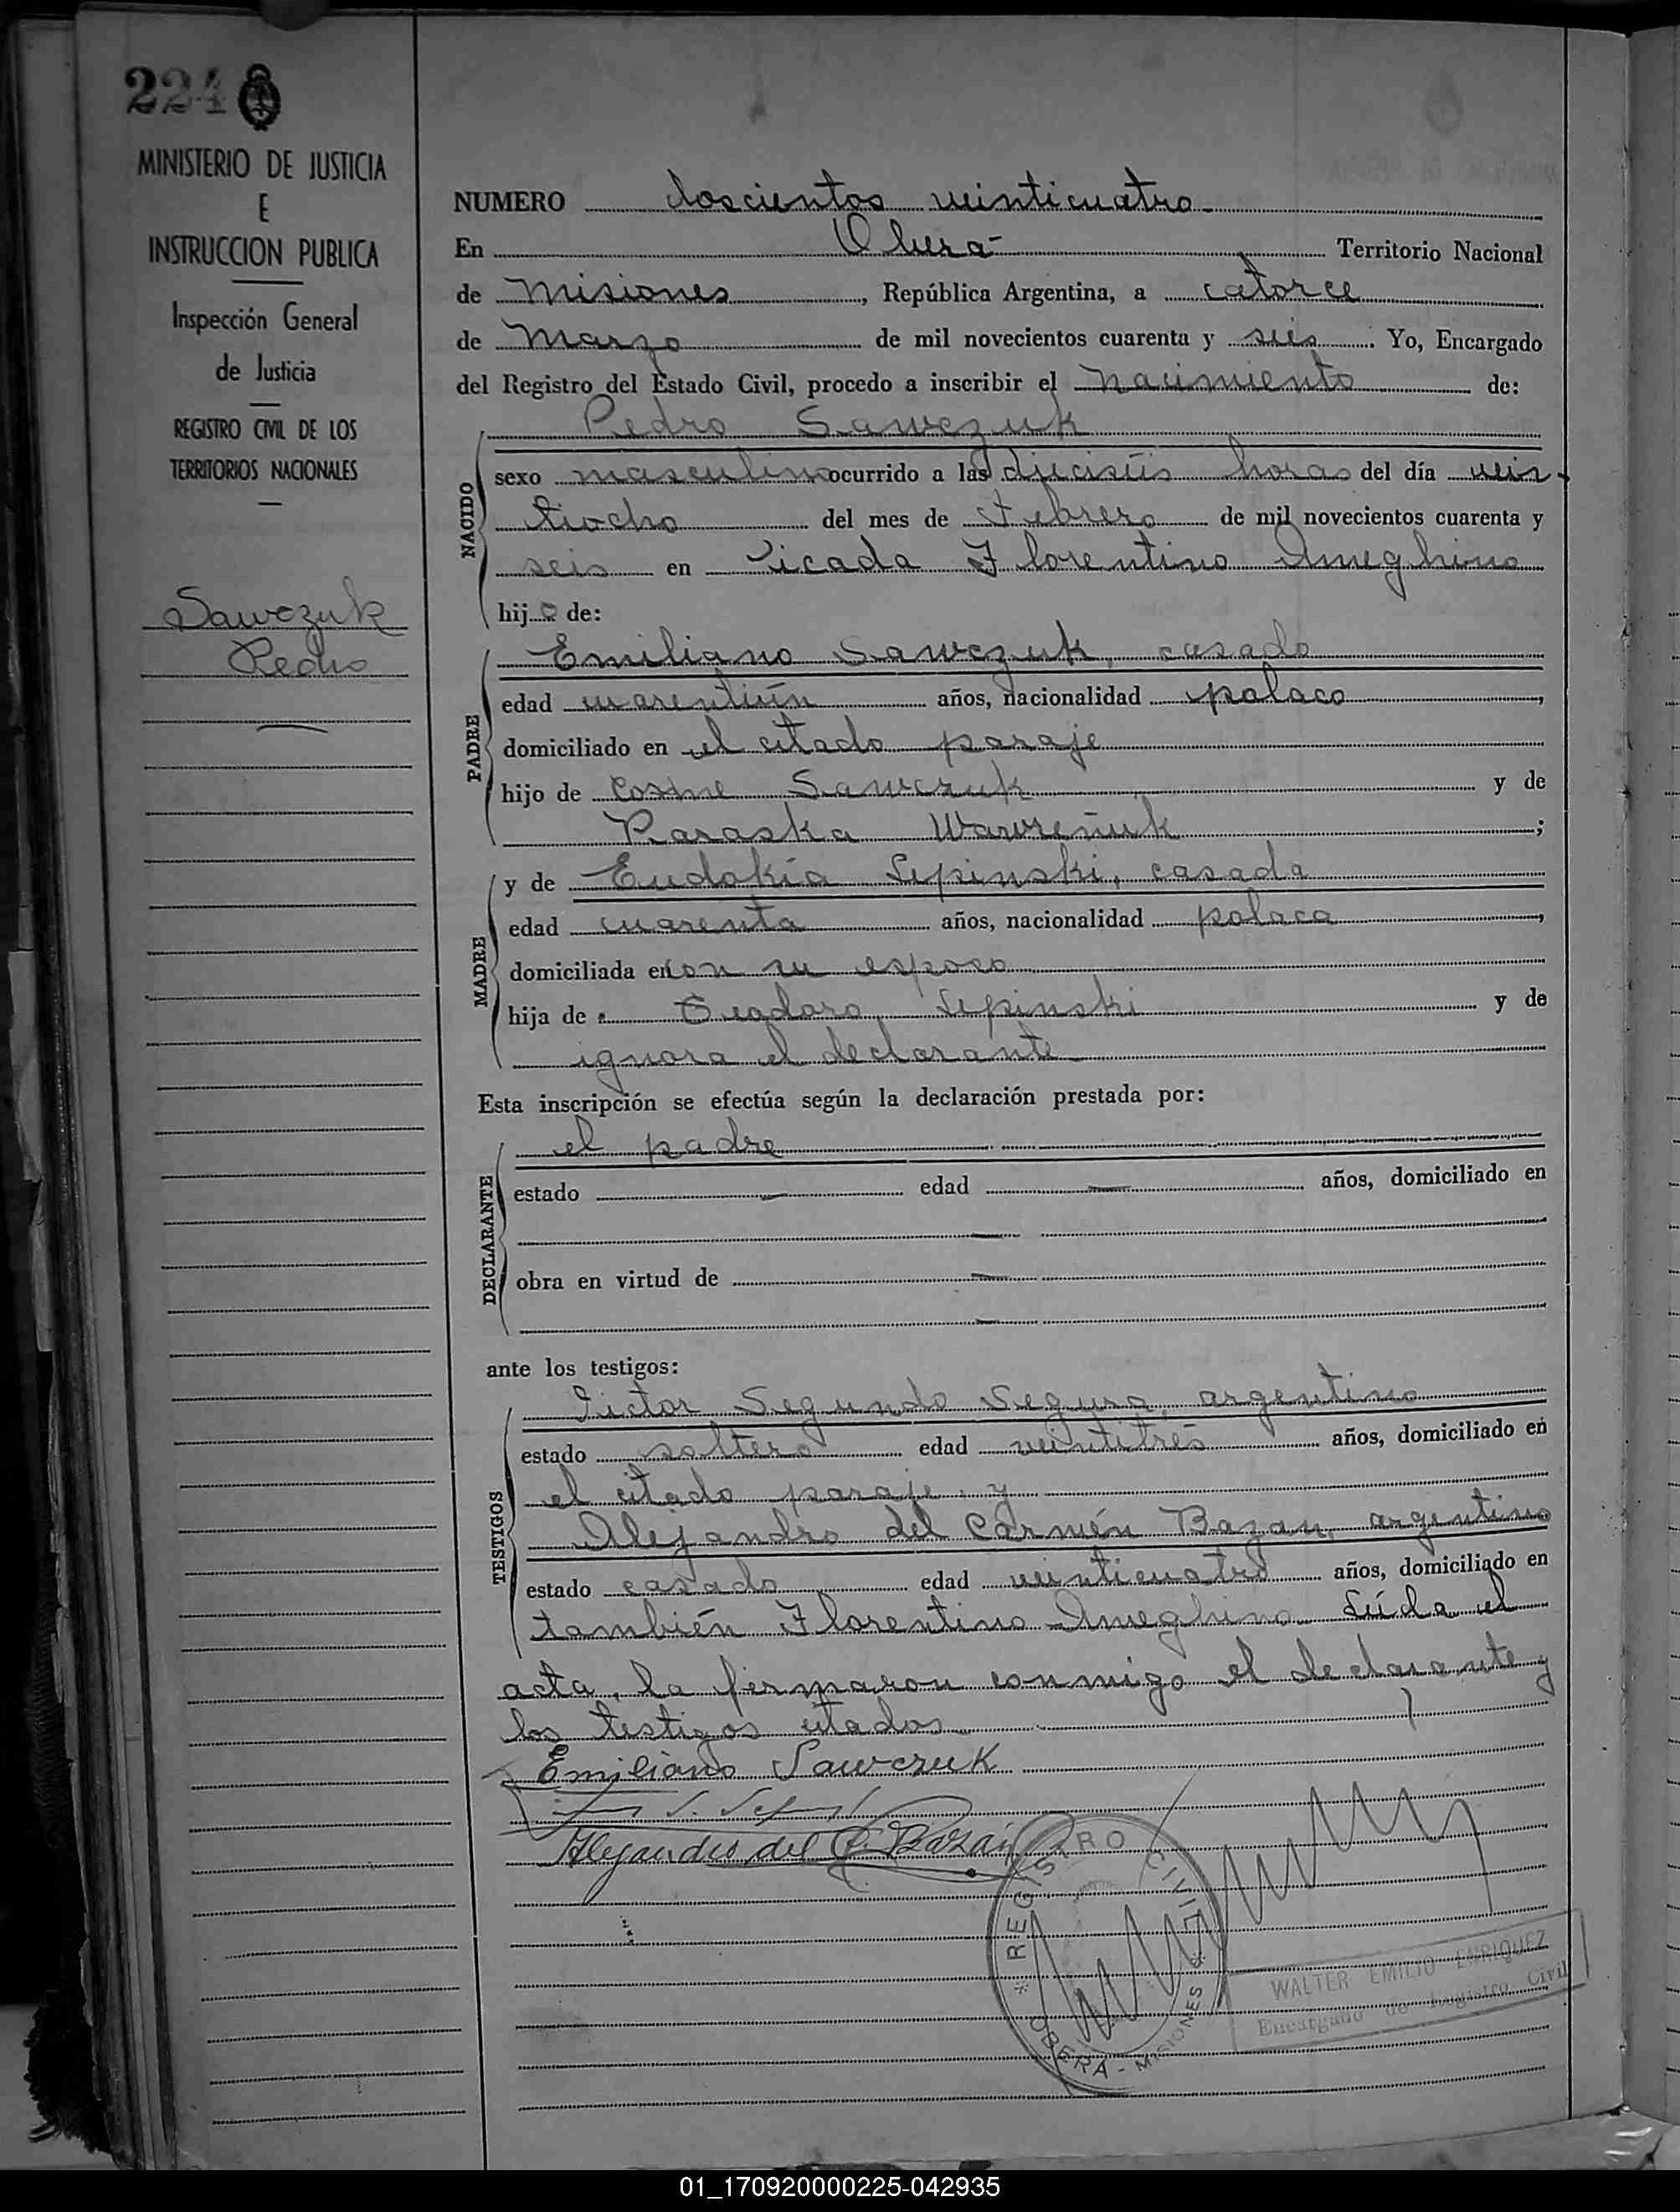 224
MINISTERIO DE JUSTICIA
E
INSTRUCCION PUBLICA
Inspección General
de Justicia
REGISTRO CIVIL DE LOS
TERRITORIOS NACIONALES
Sawczuk
Pedro
NUMERO doscientos veinticuatro
En Oberá Territorio Nacional
de Misiones, República Argentina, a catorce
de Marzo de mil novecientos cuarenta y seis. Yo, Encargado
del Registro del Estado Civil, procedo a inscribir el nacimiento de:
Pedro Sawczuk
NACIDO
sexo masculino ocurrido a las dieciseis horas del día vein-
tiocho del mes de Febrero de mil novecientos cuarenta y
seis en Picada Florentino Ameghino
hijo de:
PADRE
Emiliano Sawczuk, casado
edad cuarentiún años, nacionalidad polaco,
domiciliado en el citado paraje
hijo de Cosme Sawczuk y de
Paraska Wawreñuk;
MADRE
y de Eudokia Lepinski, casada
edad cuarenta años, nacionalidad polaca,
domiciliada en con su esposo
hija de Teodoro Lepinski y de
ignora el declarante
Esta inscripción se efectúa según la declaración prestada por:
DECLARANTE
el padre
estado — edad — años, domiciliado en
—
obra en virtud de —
—
ante los testigos:
TESTIGOS
Victor Segundo Segura, argentino
estado soltero edad veintitrés años, domiciliado en
el citado paraje, y
Alejandro del Carmén Bazan, argentino
estado casado edad veinticuatro años, domiciliado en
también Florentino Ameghino. Leída el
acta, la firmaron conmigo el declarante y
los testigos citados
Emiliano Sawczuk
Alejandro del C. Bazán
* REGISTRO CIVIL *
OBERA - MISIONES
WALTER EMILIO ENRIQUEZ
Encargado de Registro Civil
01_170920000225-042935